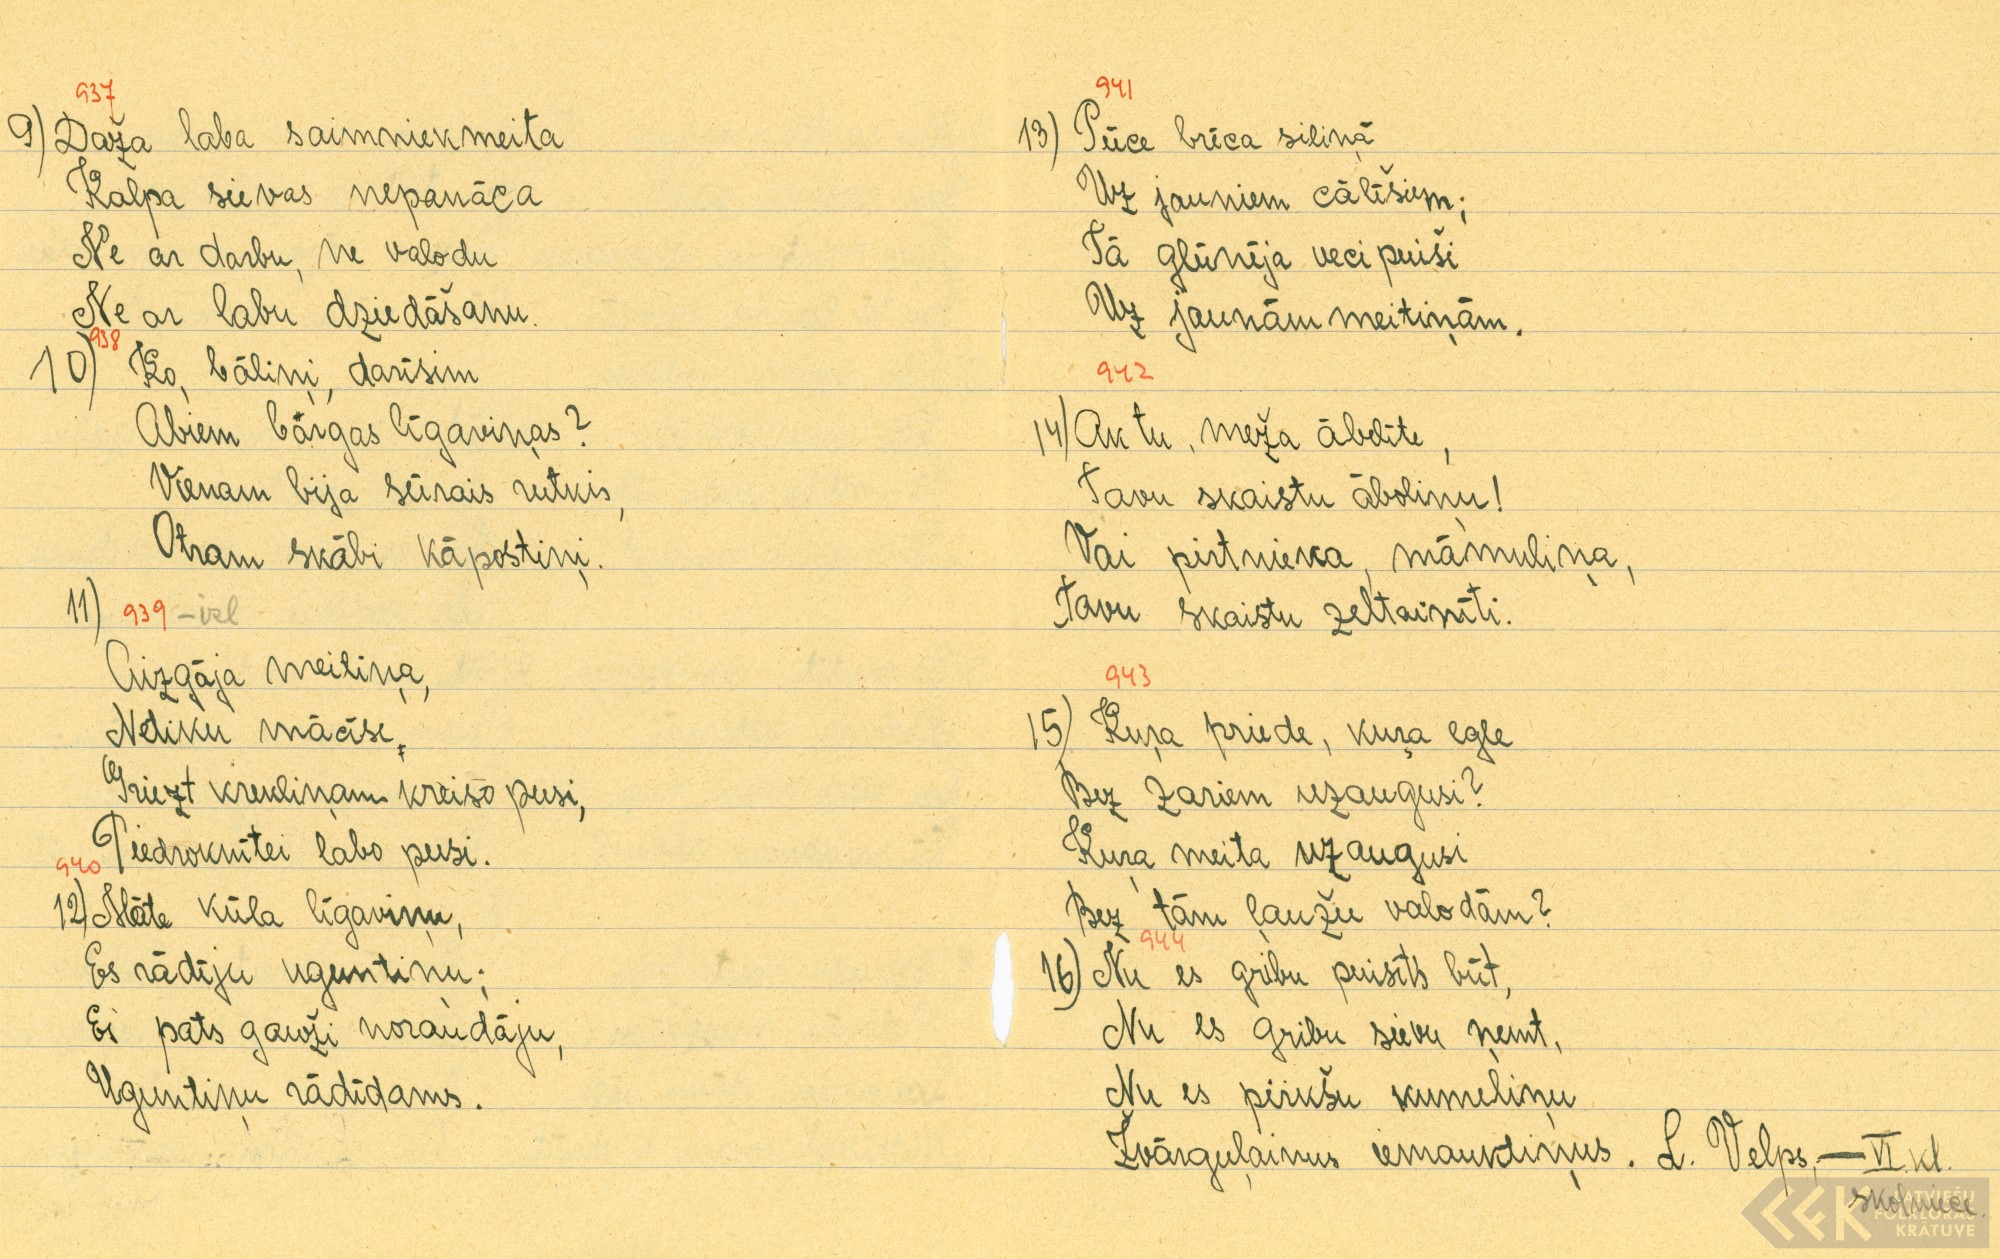 937
9) Daža laba saimniekmeita
Kalpa sievas nepanāca
Ne ar darbu, ne valodu
Ne ar labu dziedāšanu.
938
10) Ko, bāliņi, darīsim
Abiem bārgas līgaviņas?
Vienam bija sūrais rutkis,
Otram skābi kāpostiņi.
11) 939 – izl
Aizgāja meitiņa,
Netiku mācīse,
Griezt krekliņam kreiso pusi,
Piedroknītei labo pusi.
940
12) Māte kūla līgaviņu,
Es rādīju uguntiņu;
Es pats gauži noraudāju,
Uguntiņu rādīdams.
941
13) Pūce brēca siliņā
Uz jauniem cālīšiem;
Tā glūnēja veci puiši
Uz jaunām meitiņām.
942
14) Ak tu, meža ābelīte,
Tavu skaistu āboliņu!
Vai pirtnieka, māmuliņa,
Tavu skaistu zeltainīti.
943
15) Kuŗa priede, kuŗa egle
Bez zariem uzaugusi?
Kuŗa meita uzaugusi
Bez tām ļaužu valodām?
944
16) Nu es gribu puisīts būt,
Nu es gribu sievu ņemt,
Nu es pirkšu kumeliņu
Žvārguļainus iemauktiņus. L. Velps, — VI. kl.
skolniece.
LATVIEŠU
FOLKLORAS
KRĀTUVE